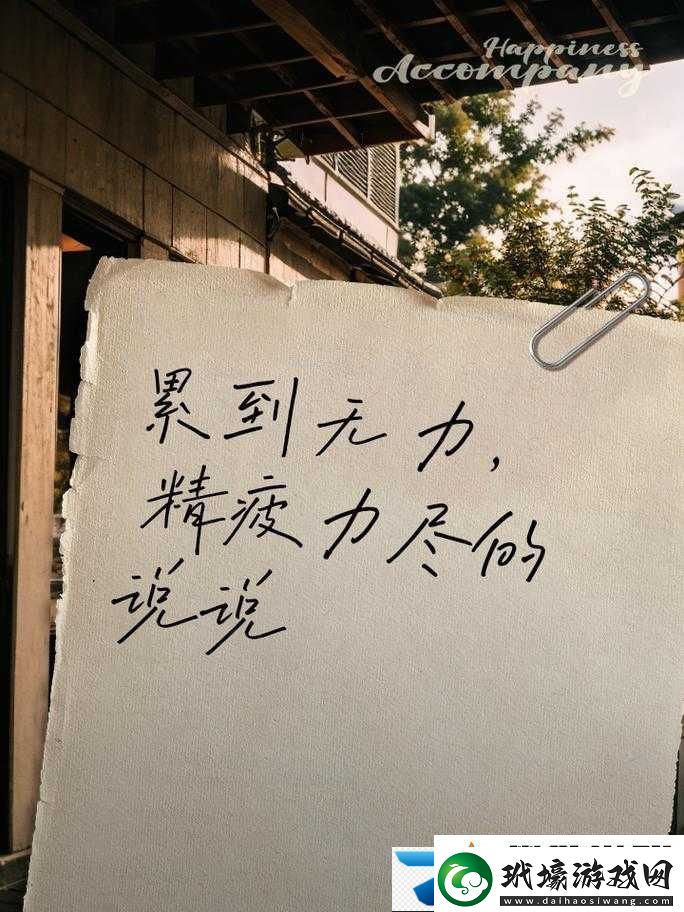 Happiness
Accompany
累到无力，
精疲力尽的
说说
玳壕游戏网
www.daihaosiwang.com